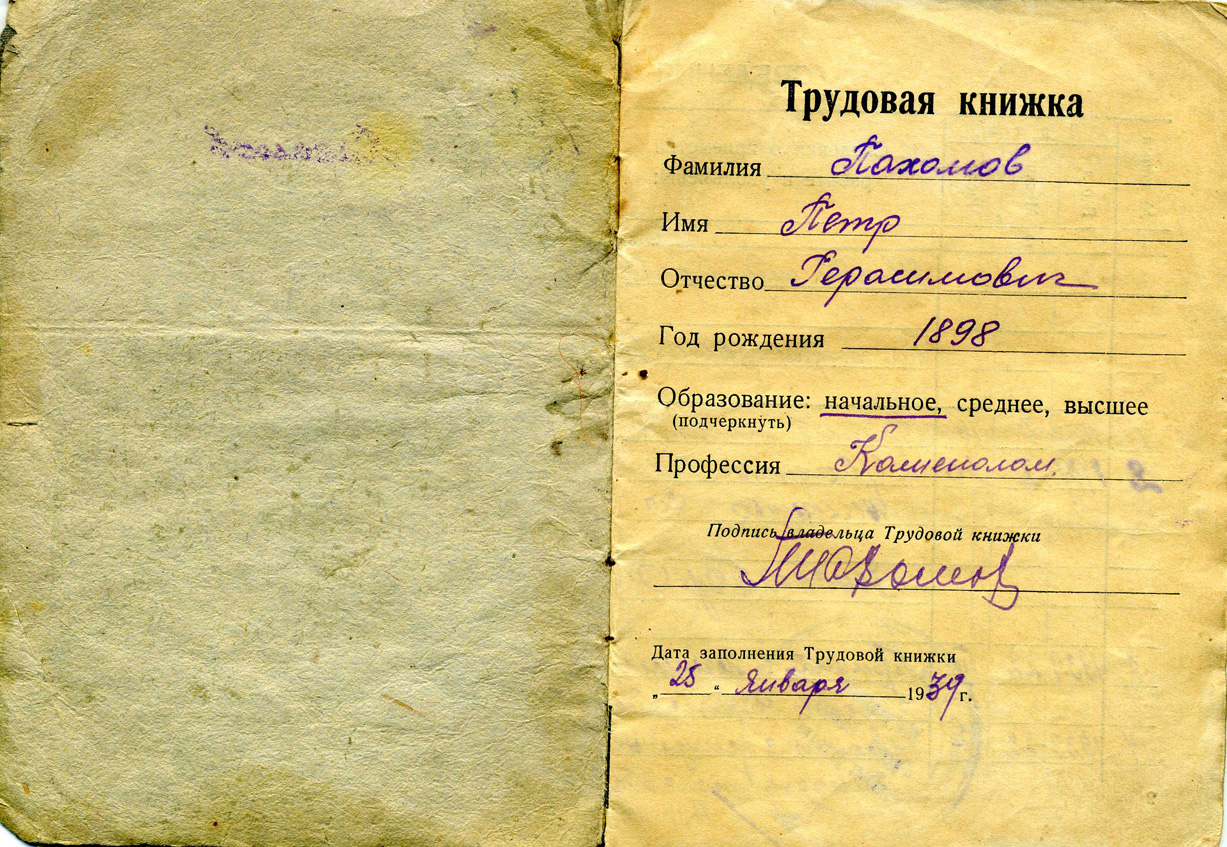 Трудовая книжка
Фамилия Пахомов
Имя Петр
Отчество Герасимович
Год рождения 1898
Образование: начальное, среднее, высшее
(подчеркнуть)
Профессия Каменолом
Подпись владельца Трудовой книжки
Пахомов
Дата заполнения Трудовой книжки
„25“ Января 1939 г.